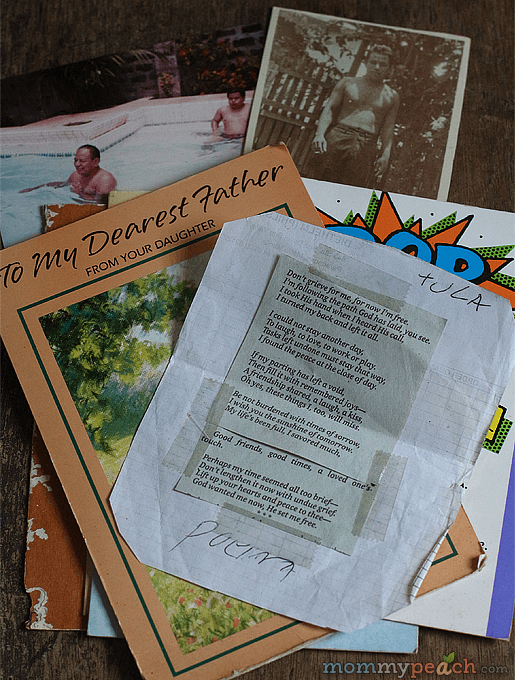 To My Dearest Father
FROM YOUR DAUGHTER
POP
TULA
Don't grieve for me, for now I'm free.
I'm following the path God has laid, you see.
I took His hand when I heard His call,
I turned my back and left it all.
I could not stay another day,
To laugh, to love, to work or play.
Tasks left undone must stay that way,
I found the peace at the close of day.
If my parting has left a void,
Then fill it with remembered joys—
A friendship shared, a laugh, a kiss,
Oh yes, these things I, too, will miss.
Be not burdened with times of sorrow,
I wish you the sunshine of tomorrow.
My life's been full, I savored much,
Good friends, good times, a loved one's
touch.
Perhaps my time seemed all too brief—
Don't lengthen it now with undue grief.
Lift up your hearts and peace to thee—
God wanted me now, He set me free.
mommypeach.com